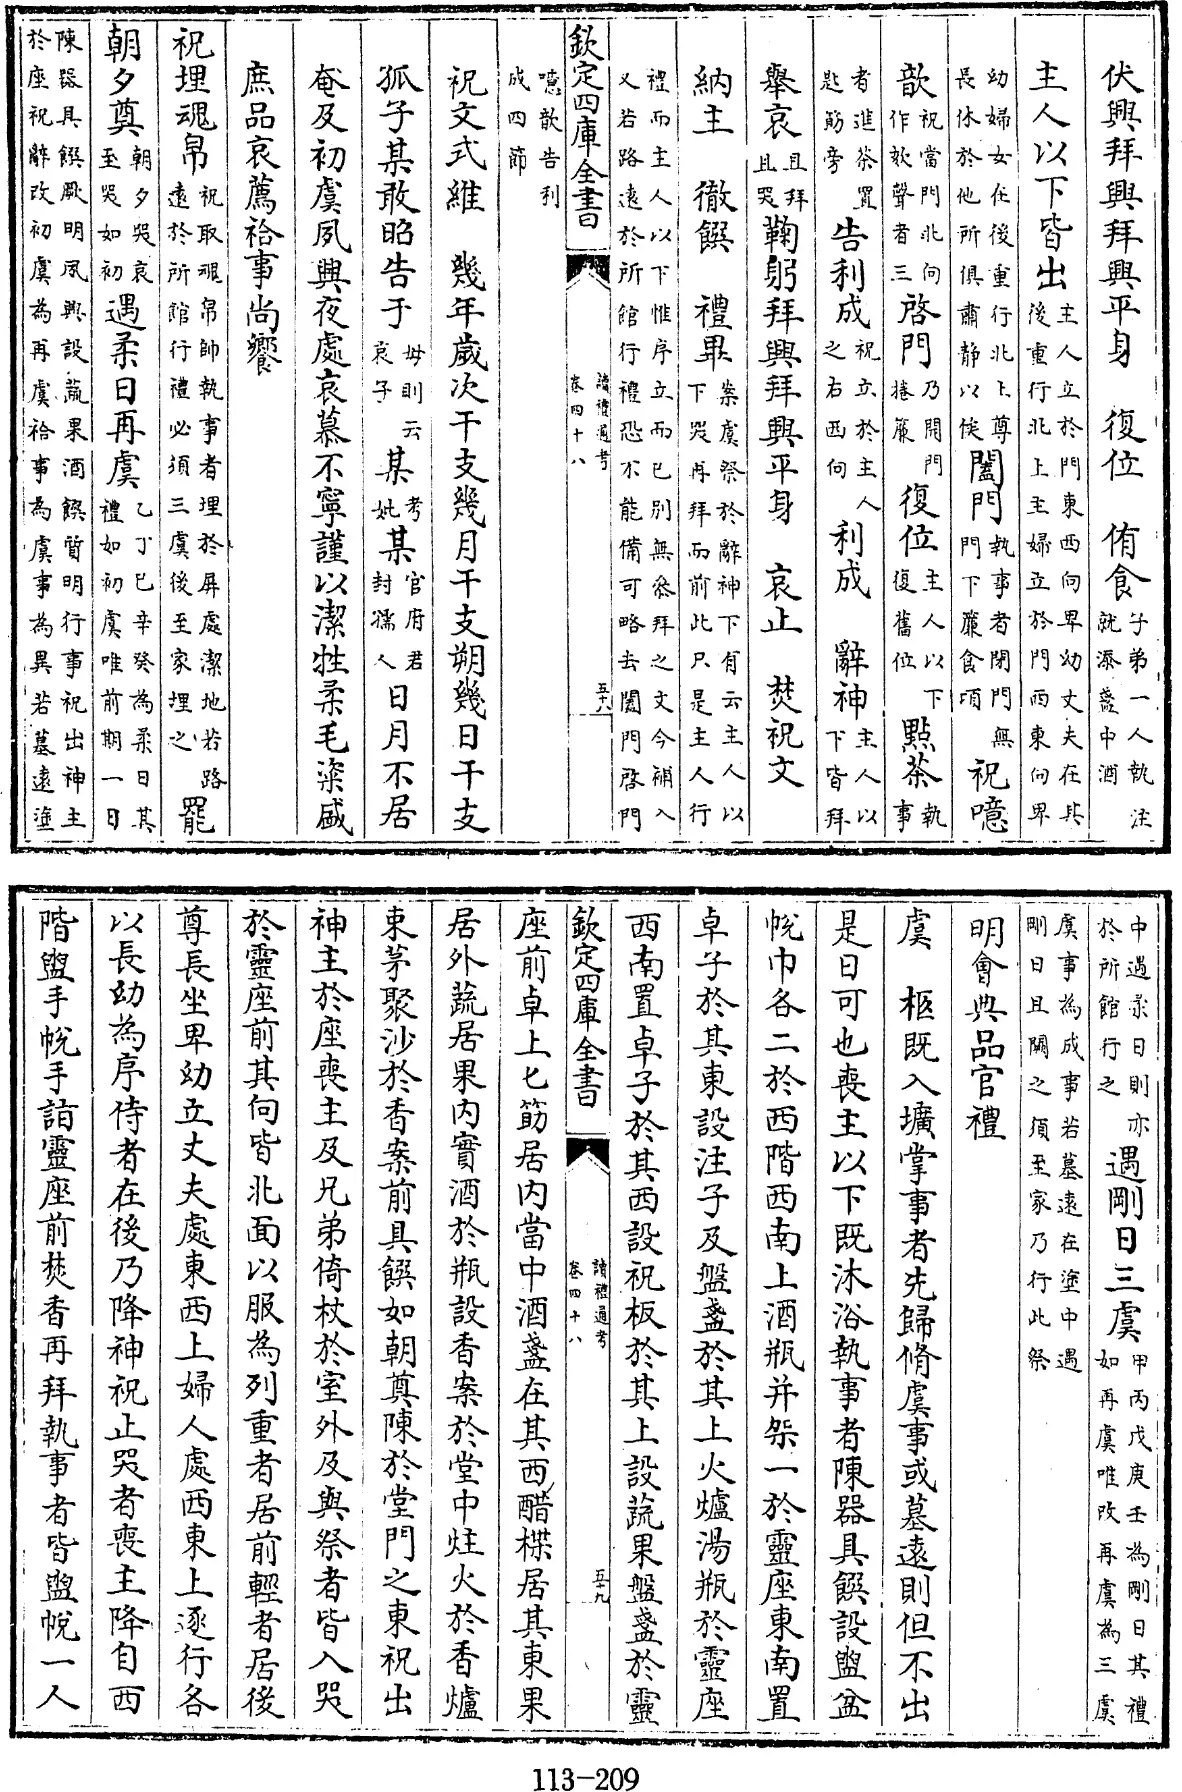 伏興拜興拜興平身　復位　侑食子弟一人執注就添盞中酒
主人以下皆出主人立於門東西向卑幼丈夫在其後重行北上主婦立於門西東向卑
幼婦女在後重行北上尊長休於他所俱肅静以俟闔門執事者閉門無門下簾食頃祝噫
歆祝當門北向作欬聲者三啓門乃開門捲簾復位主人以下復舊位點茶執事
者進茶置匙筯旁告利成祝立於主人之右西向利成　辭神主人以下皆拜
舉哀且拜且哭鞠躬拜興拜興平身　哀止　焚祝文
納主　徹饌　禮畢案虞祭於辭神下有云主人以下哭再拜而前此只是主人行
禮而主人以下惟序立而已别無叅拜之文今補入又若路遠於所館行禮恐不能備可略去闔門啓門
噫歆告利成四節
欽定四庫全書
讀禮通考
卷四十八
五十八
祝文式維　幾年歲次干支幾月干支朔幾日干支
孤子某敢昭告于母則云哀子某考妣某官府君封孺人日月不居
奄及初虞夙興夜處哀慕不寧謹以潔牲柔毛粢盛
庶品哀薦祫事尚饗
祝埋魂帛祝取魂帛帥執事者理於屏處潔地若路遠於所館行禮必須三虞後至家埋之罷
朝夕奠朝夕哭哀至哭如初遇柔日再虞乙丁巳辛癸為柔日其禮如初虞唯前期一日
陳器具饌厥明夙興設蔬果酒饌質明行事祝出神主於座祝辭改初虞為再虞祫事為虞事為異若墓遠塗
中遇柔日則亦於所館行之遇剛日三虞甲丙戊庚壬為剛日其禮如再虞唯改再虞為三虞
虞事為成事若墓遠在塗中遇剛日且闕之須至家乃行此祭
明會典品官禮
虞　柩既入壙掌事者先歸脩虞事或墓遠則但不出
是日可也喪主以下既沐浴執事者陳器具饌設盥盆
帨巾各二於西階西南上酒瓶并架一於靈座東南置
卓子於其東設注子及盤盞於其上火爐湯瓶於靈座
西南置卓子於其西設祝板於其上設蔬果盤盞於靈
欽定四庫全書
讀禮通考
卷四十八
五十九
座前卓上匕筯居内當中酒盞在其西醋楪居其東果
居外蔬居果内實酒於瓶設香案於堂中炷火於香爐
束茅聚沙於香案前具饌如朝奠陳於堂門之東祝出
神主於座喪主及兄弟倚杖於室外及與祭者皆入哭
於靈座前其向皆北面以服為列重者居前輕者居後
尊長坐卑幼立丈夫處東西上婦人處西東上逐行各
以長幼為序侍者在後乃降神祝止哭者喪主降自西
階盥手帨手詣靈座前焚香再拜執事者皆盥帨一人
113-209